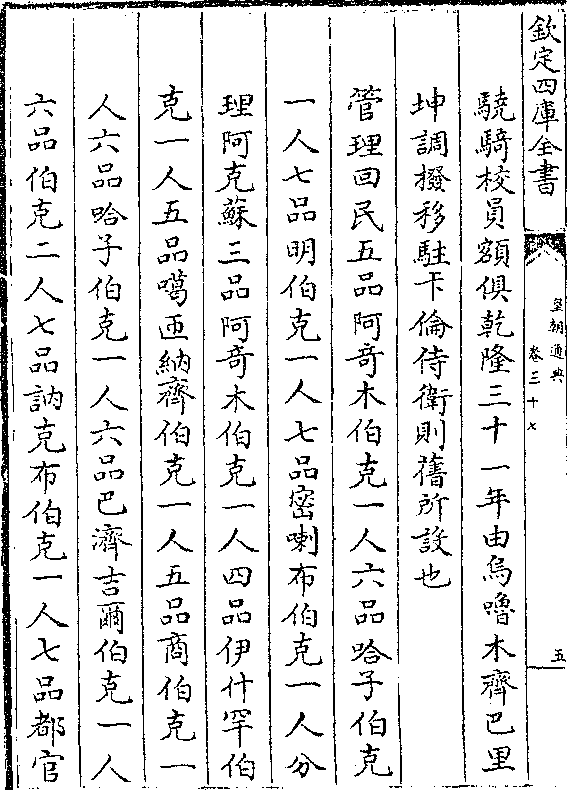 欽定四庫全書
皇朝通典
卷三十七
五
驍騎校員額俱乾隆三十一年由烏嚕木齊巴里
坤調撥移駐卡倫侍衛則舊所設也
管理回民五品阿竒木伯克一人六品哈子伯克
一人七品明伯克一人七品密喇布伯克一人分
理阿克蘇三品阿竒木伯克一人四品伊什罕伯
克一人五品噶匝納齊伯克一人五品商伯克一
人六品哈子伯克一人六品巴濟吉爾伯克一人
六品伯克二人七品訥克布伯克一人七品都官